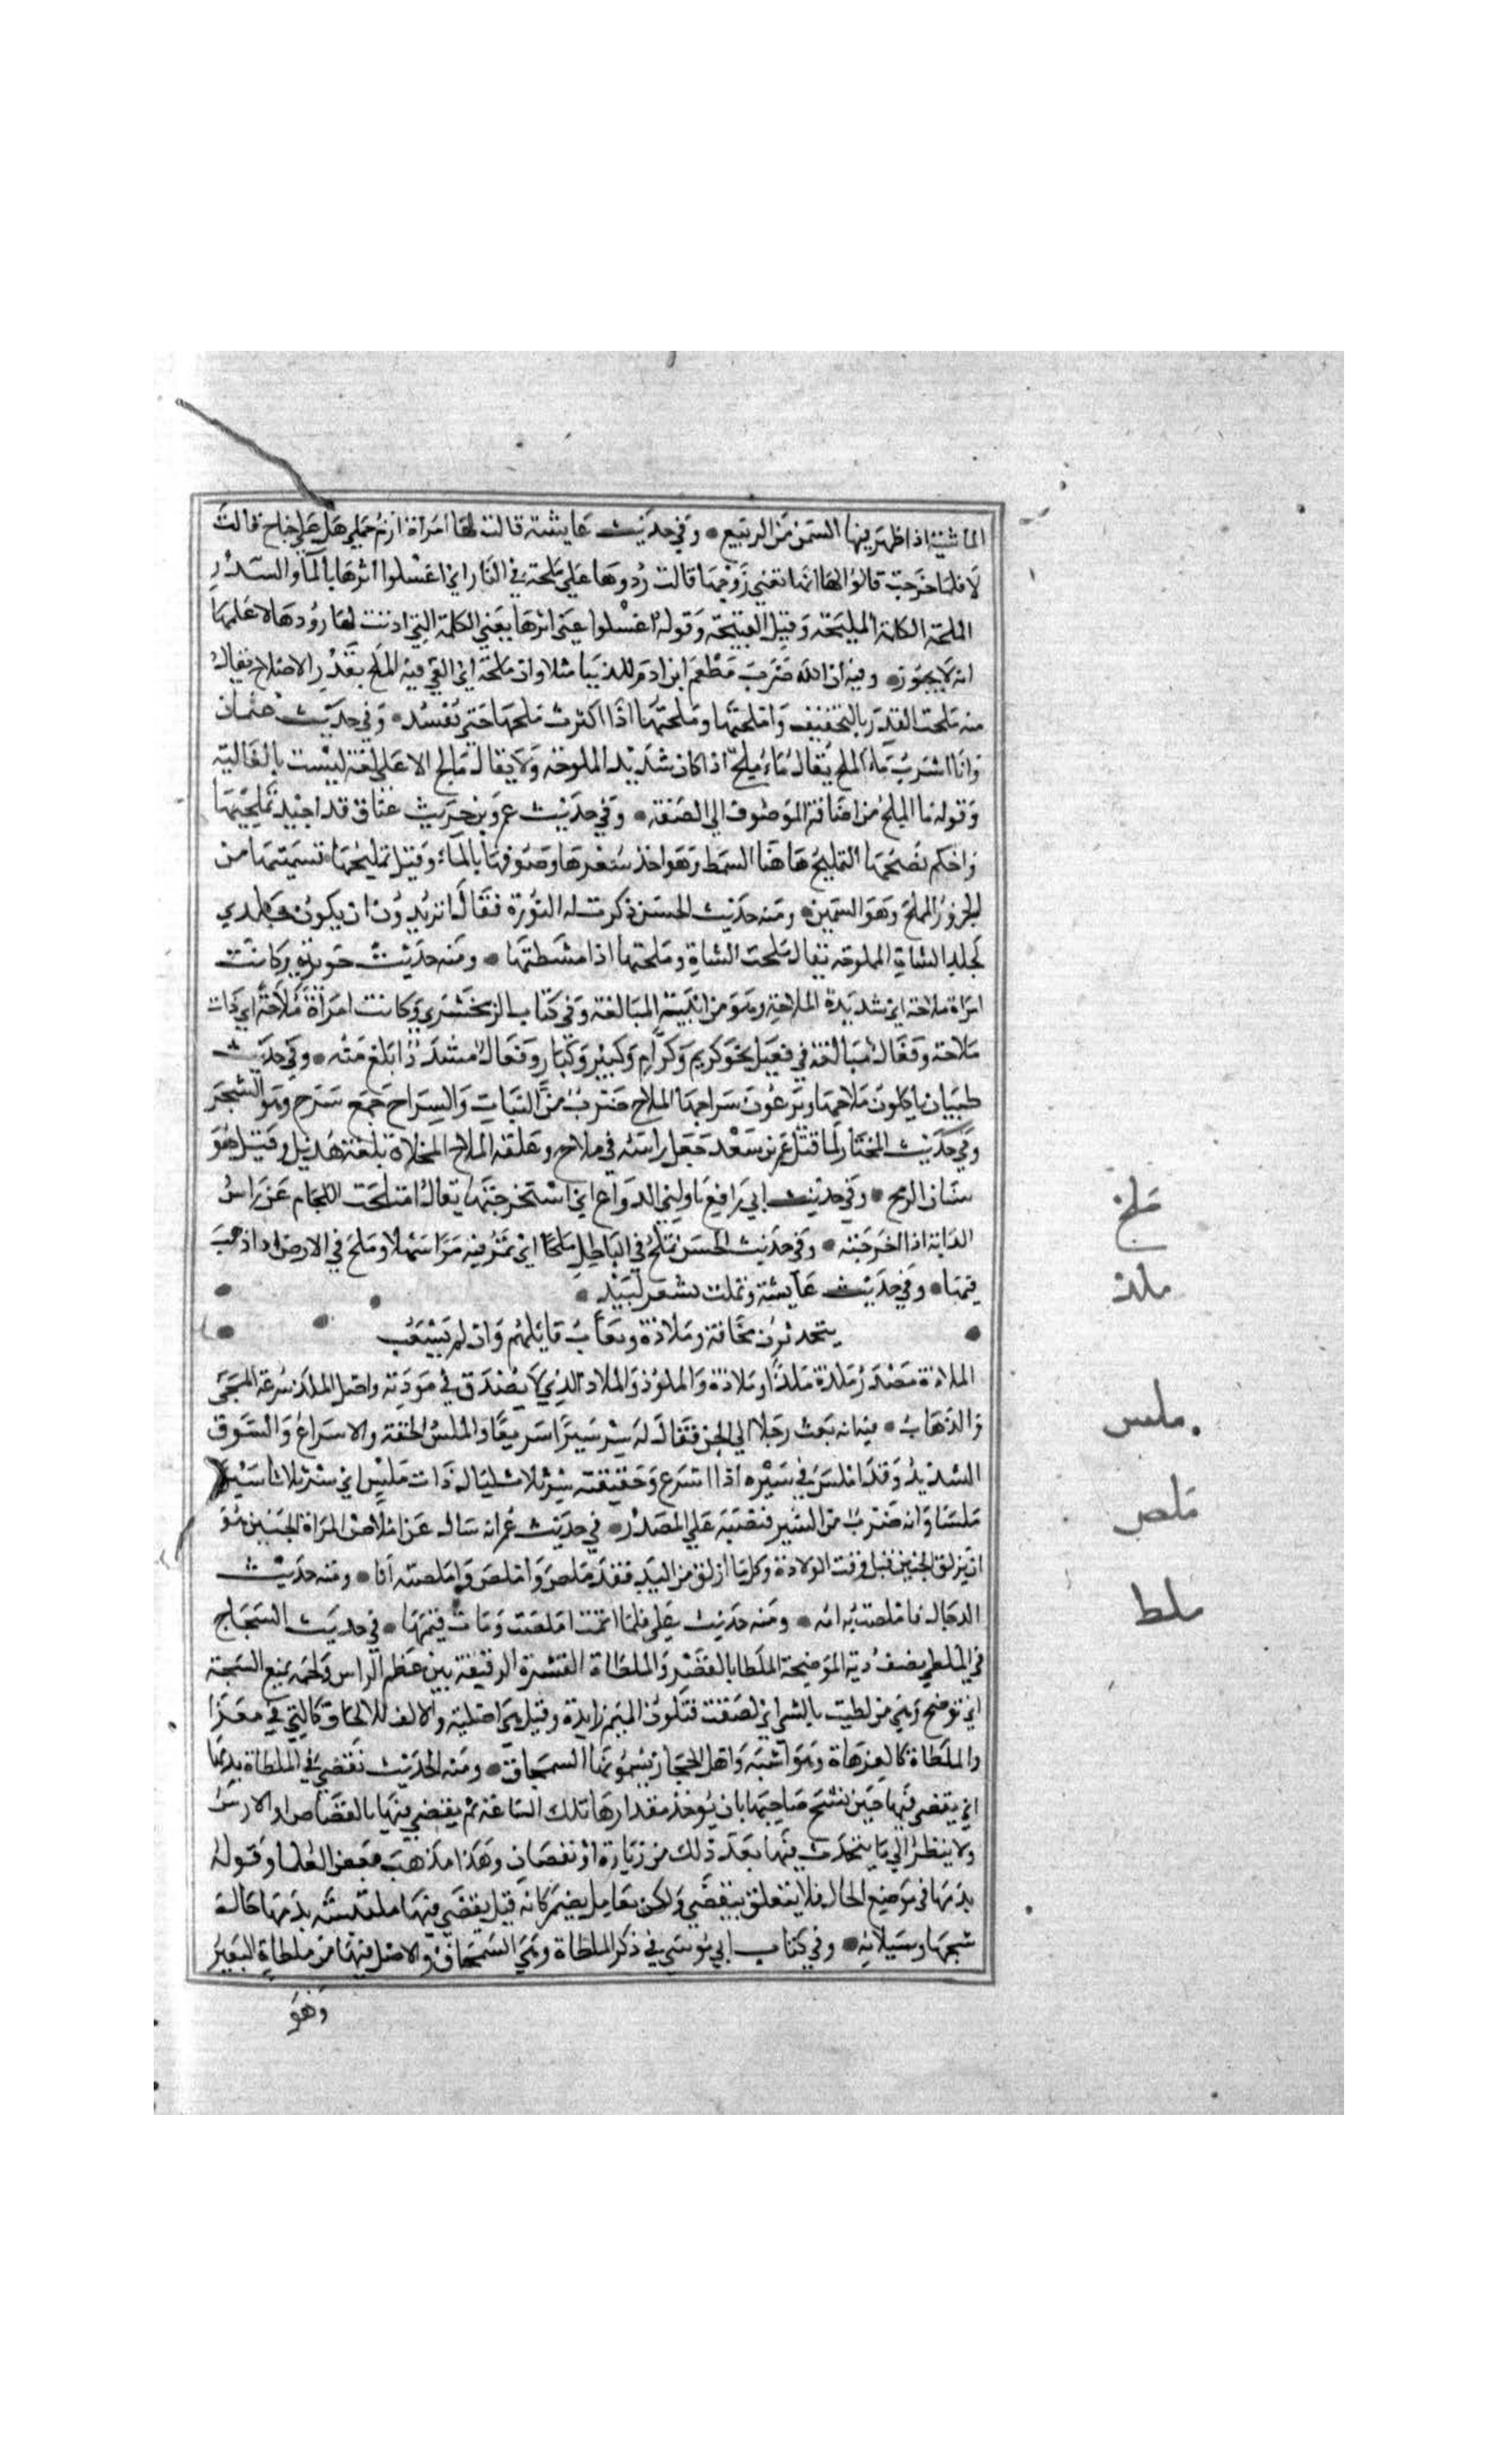 الماشية اذا ظهر فيها السمن من الربيع • وفي حديث عايشة قالت لها امراة ازم جملي هل علي جناح قالت
لا فلما خرجت قالوا لها انما تعني زوجها قالت ردوها علي ملحة في النار اي اغسلوا اثرها بالما والسدر
الملحة الكلمة المليحة وقيل القبيحة وقولها اغسلوا عني اثرها يعني الكلمة التي اذنت لها ردوها لاعلمها
انه لا يجوز • وفيه ان الله ضرب مطعم ابن ادم للدنيا مثلا وان ملحه اي القي فيه الملح بقدر الاصلاح يقال
منه ملحت القدر بالتخفيف واملحتها وملحتها اذا اكثرت ملحها حتى تفسد • وفي حديث عثمان
وانا اشرب ماء الملح يقال ماء ملح اذا كان شديد الملوحة ولا يقال مالح الا على لغة ليست بالعالية
وقوله ما الملح من اضافة الموصوف الي الصفة • وفي حديث عمرو بن حريث عناق قد اجيد تمليحها
واحكم نضجها التمليح هاهنا السمط وهو اخذ شعرها وصوفها بالماء وقيل تمليحها تسميتها من
الجزور المملح وهو السمين • ومنه حديث الحسن ذكرت له النورة فقال اتريدون ان يكون جلدي
كجلد الشاة المملوحة يقال ملحت الشاة وملحتها اذا مشطتها • ومنه حديث جويرية وكانت
امراة ملاحة اي شديدة الملاحة وهو من ابنية المبالغة وفي كتاب الزمخشري وكانت امراة ملاحة اي ذات
ملاحة وفعال مبالغة في فعيل نحو كريم وكرام وكبير وكبار وفعال مشدد ا ابلغ منه • وفي حديث
ظبيان ياكلون ملاحها ويرعون سراحها الملاح ضرب من النبات والسراح جمع سرح وهو الشجر
وفي حديث المختار لما قتل عمر بن سعد جعل راسه في ملاح وعلقه الملاح المخلاة بلغة هذيل وقيل هو
سنان الرمح • وفي حديث ابي رافع ناولني الذراع اي استخرجتها يقال امتلخت اللجام عن راس
الدابة اذا اخرجته • وفي حديث الحسن يملخ في الباطل ملخا اي يمر فيه مرا سهلا وملخ في الارض اذا ذهب
فيها • وفي حديث عايشة وتمثلت بشعر لبيد •
يتحدثون مخافة وملاذة ويعاب قايلهم وان لم يشغب
الملاذة مصدر ملذه ملذا وملاذة والملوذ والملاذ الذي لا يصدق في مودته واصل الملذ سرعة المجي
والذهاب • فيه انه بعث رجلا الي الجن فقال له سر سيرا سريعا والملس الخفة والاسراع والسوق
الشديد وقد املس في سيره اذا اسرع وحقيقته سر ثلاث ليال ذات ملس اي سر ثلاثا سيرا
ملسا او انه ضرب من السير فنصبه علي المصدر • في حديث عمر انه سال عن املاص المراة الجنين هو
ان يزلق الجنين قبل وقت الولادة وكل ما ازلق من اليد فقد ملص واملص واملصته انا • ومنه حديث
الدجال فاملصت به امه • ومنه حديث علي فلما اتمت املصت ومات قيمها • في حديث الشجاج
في الملطي نصف دية الموضحة الملطا بالقصر والملطاة القشرة الرقيقة بين عظم الراس ولحمه يمنع الشجة
ان توضح وهي من لطيت بالشي اي لصقت فتكون الميم زايدة وقيل هي اصلية والالف للالحاق كالتي في معزا
والملطاة كالعزهاة وهو اشبه واهل الحجاز يسمونها السمحاق • ومنه الحديث يقضي في الملطاة بدمها
اي يقضي فيها حين يشج صاحبها بان يوخذ مقدارها تلك الساعة ثم يقضي فيها بالقصاص او الارش
ولا ينظر الي ما يحدث فيها بعد ذلك من زيادة او نقصان وهذا مذهب بعض العلما وقوله
بدمها في موضع الحال فلا يتعلق بيقضي ولكن بعامل يضمر كانه قيل يقضي فيها ملتبسة بدمها حالة
شجها وسيلانه • وفي كتاب ابي موسي في ذكر الملطاة وهي السمحاق والاصل فيها من ملطاة البعير
وهو
ملخ
ملذ
ملس
ملص
ملط